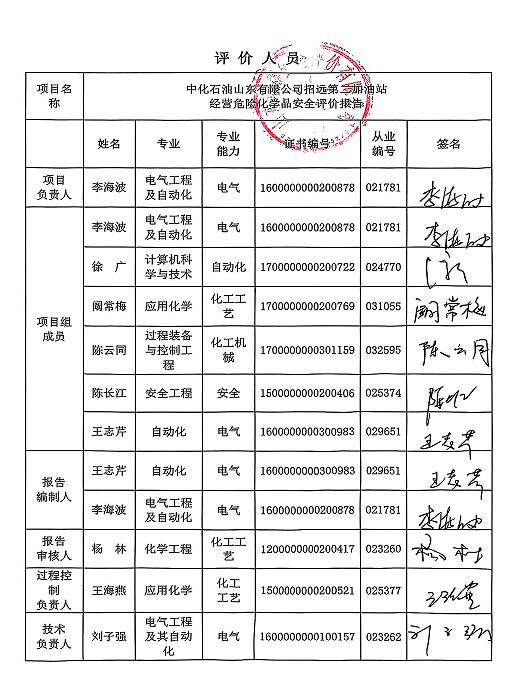 评 价 人 员
项目名称 中化石油山东有限公司招远第二加油站
经营危险化学品安全评价报告
姓名 专业 专业能力 证书编号 从业编号 签名
项目负责人 李海波 电气工程及自动化 电气 1600000000200878 021781 李海波
项目组成员 李海波 电气工程及自动化 电气 1600000000200878 021781 李海波
徐 广 计算机科学与技术 自动化 1700000000200722 024770
阚常梅 应用化学 化工工艺 1700000000200769 031055 阚常梅
陈云同 过程装备与控制工程 化工机械 1700000000301159 032595 陈云同
陈长江 安全工程 安全 1500000000200406 025374
王志芹 自动化 电气 1600000000300983 029651 王志芹
报告编制人 王志芹 自动化 电气 1600000000300983 029651 王志芹
李海波 电气工程及自动化 电气 1600000000200878 021781 李海波
报告审核人 杨 林 化学工程 化工工艺 1200000000200417 023260
过程控制负责人 王海燕 应用化学 化工工艺 1500000000200521 025377
技术负责人 刘子强 电气工程及其自动化 电气 1600000000100157 023262